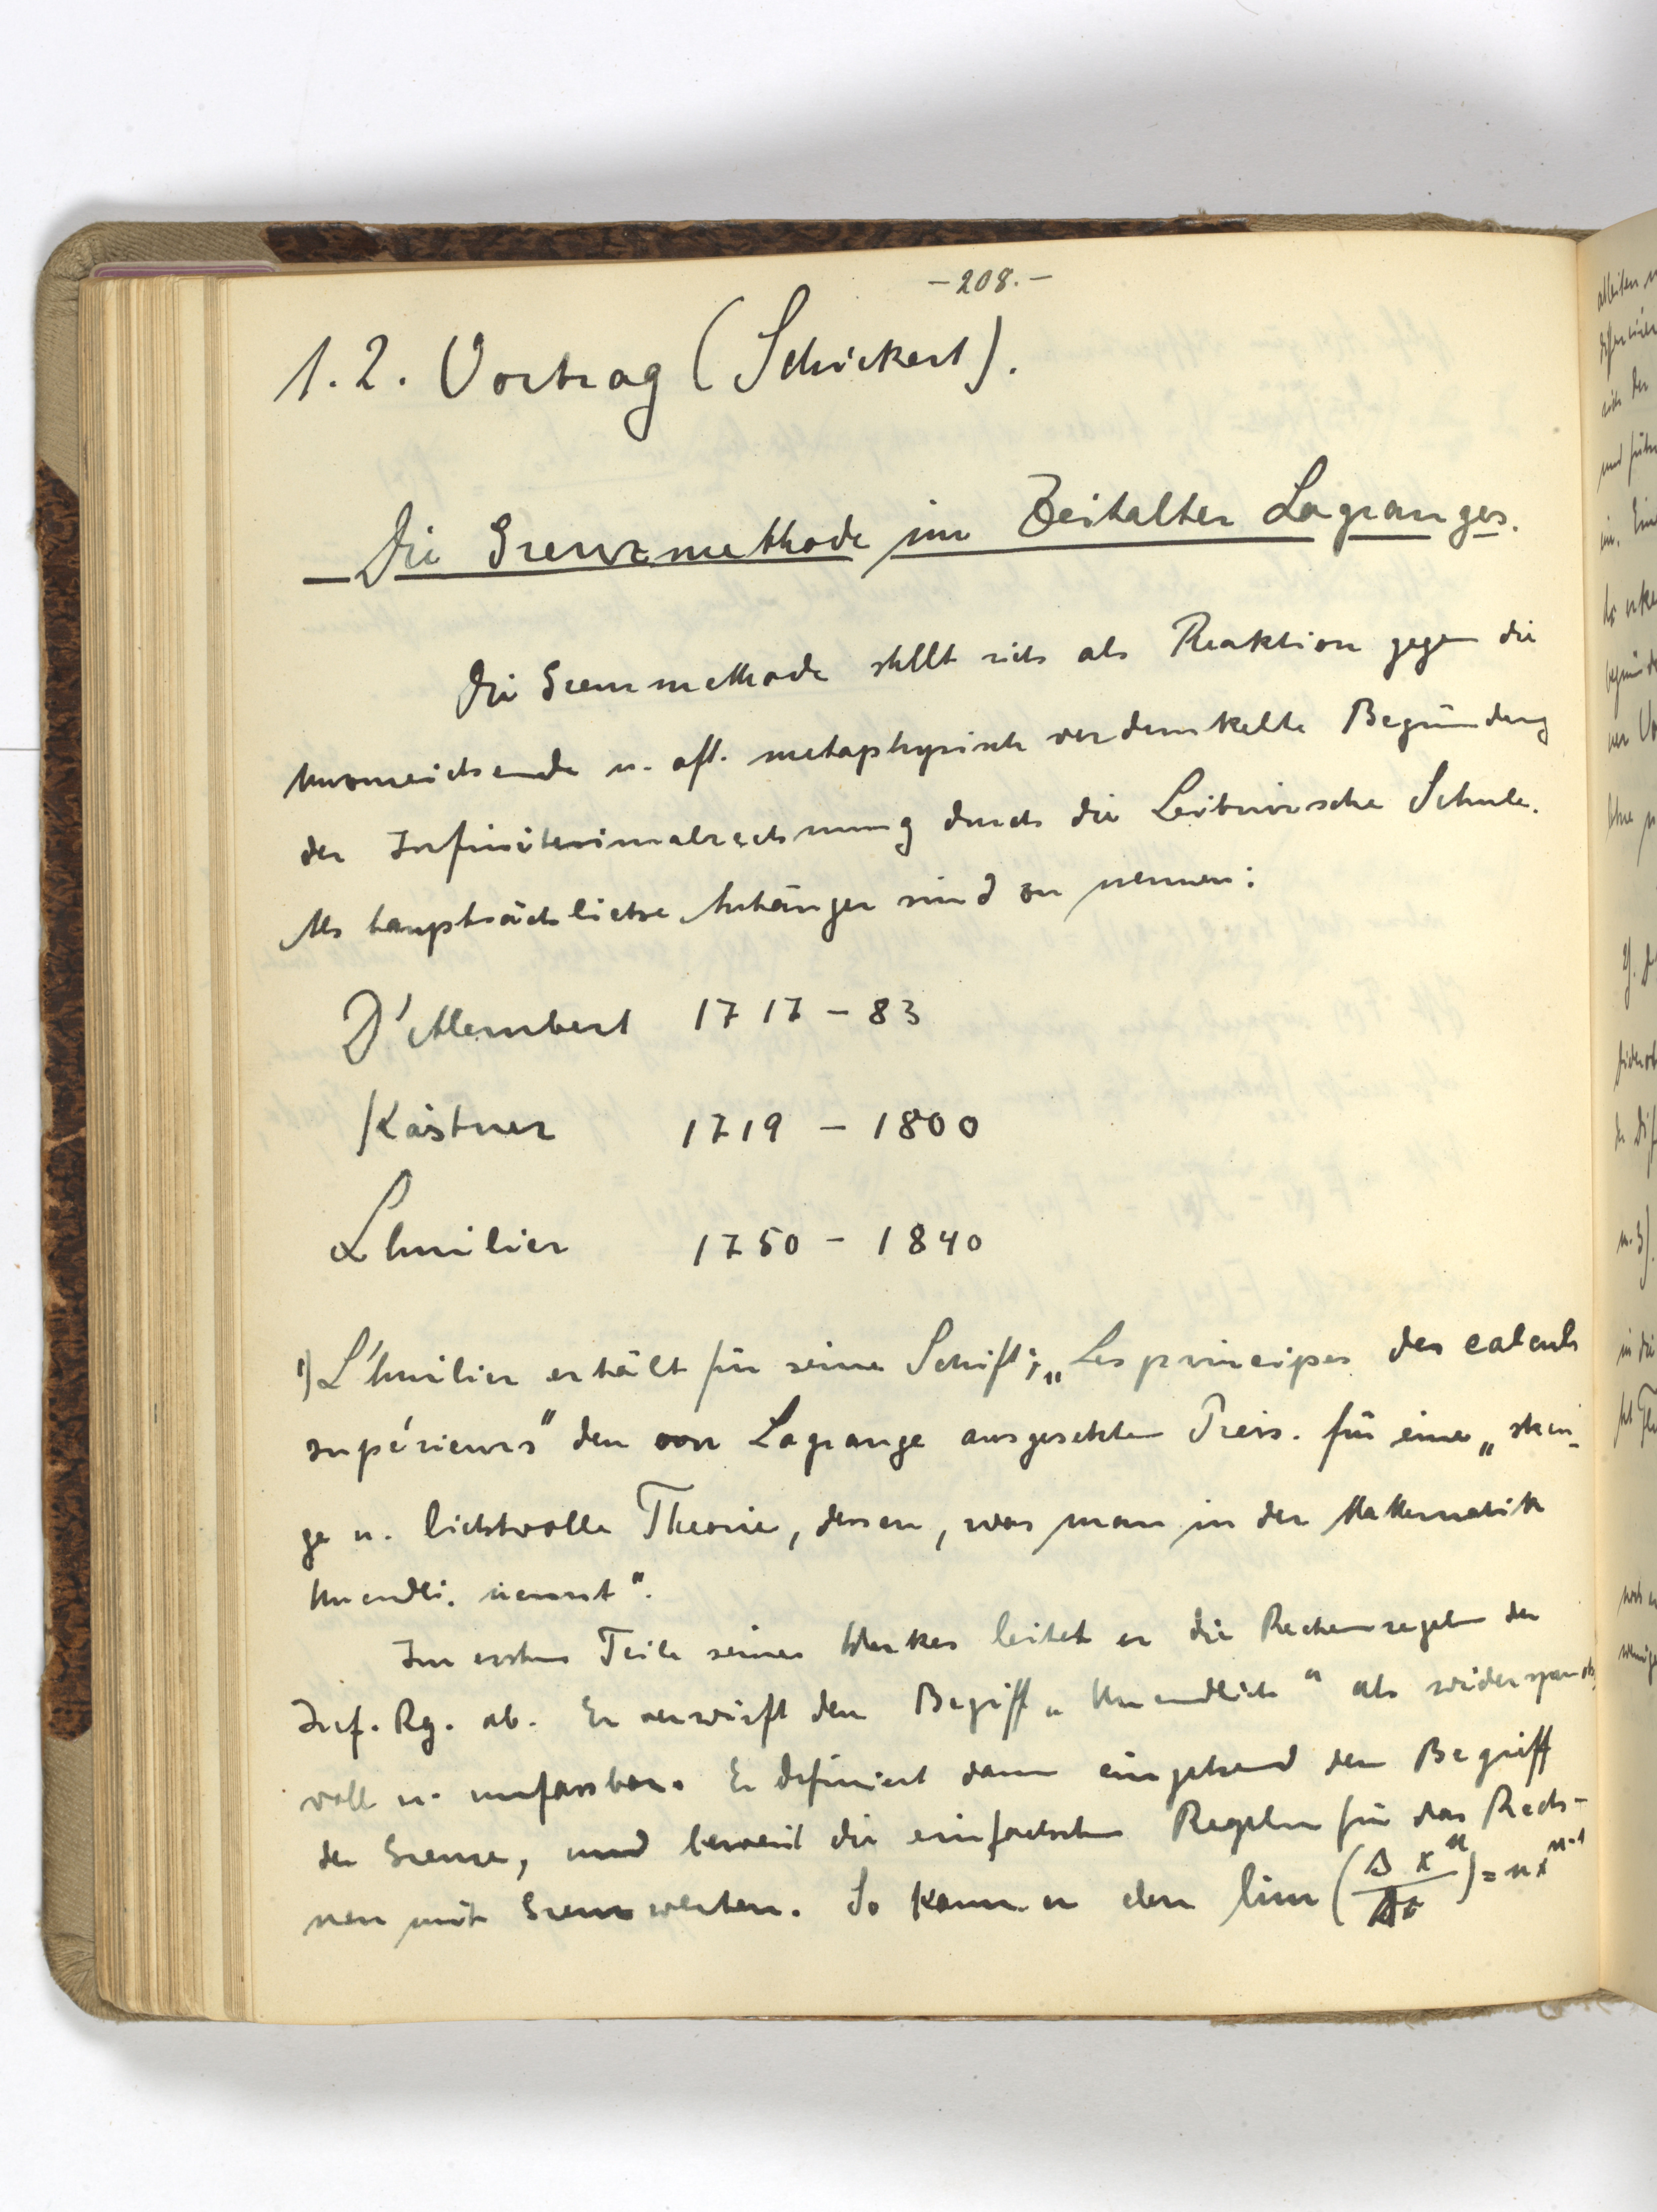 - 208. -
1. 2. Vortrag (Schickert).
Die Grenzmethode im Zeitalter Lagranges.
Die Grenzmethode stellt sich als Reaktion gegen die
Unzureichende u. oft. metaphysisch verdunkelte Begründung
der Infinitesimalrechnung durch die Leibnizsche Schule.
Als hauptsächliche Anhänger sind zu nennen:
D'Alembert 1717 - 83
Kästner 1719 - 1800
Lhuilier 1750 - 1840
1) L'huilier erhält für seine Schrift; „Les principes des calculs
supérieurs“ den von Lagrange ausgesetzten Preis. für eine „stren-
ge u. lichtvolle Theorie, dessen, was man in der Mathematik
Unendli. nennt“.
Im ersten Teile seines Werkes leitet er die Rechenregeln der
Inf. Rg. ab. Er verwirft den Begriff „Unendlich“ als widerspruchs
voll u. unfassbar. Er definiert dann eingehend den Begriff
der Grenze, und beweist die einfachsten Regeln für das Rech-
nen mit Grenzwerten. So kann er den lim (Δ x^n / Δx) = nx^n-1